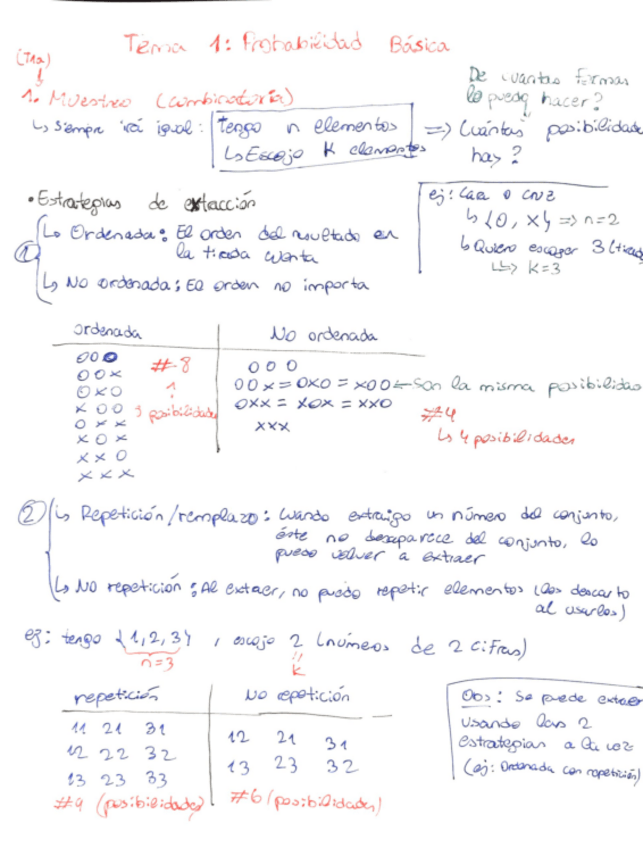 Tema 1: Probabilidad Básica
(T1a)
1. Muestreo (combinatoria)
↳ Siempre irá igual: Tengo n elementos
↳ Escojo K elementos
=> Cuántas posibilidade
hay?
De cuantas formas
lo puedo hacer?
• Estrategias de extracción
① ↳ Ordenada: El orden del resultado en
la tirada cuenta
↳ No ordenada: El orden no importa
ej: Cara o cruz
↳ {O, X} => n=2
↳ Quiero escoger 3 (tirada
↳ k=3
ordenada
OOO
OOX
OXO
XOO
OXX
XOX
XXO
XXX
#8
posibilidades
No ordenada
OOO
OOX = OXO = XOO ← Son la misma posibilidad
OXX = XOX = XXO
XXX
#4
↳ 4 posibilidades
② ↳ Repetición/remplazo: Cuando extraigo un número del conjunto,
éste no desaparece del conjunto, lo
puedo volver a extraer
↳ No repetición: Al extaer, no puedo repetir elementos (los descarto
al usarlos)
ej: tengo {1,2,3} , escojo 2 (números de 2 cifras)
n=3
k
repetición
11 21 31
12 22 32
13 23 33
#9 (posibilidades)
No repetición
12 21 31
13 23 32
#6 (posibilidades)
Obs: Se puede extaer
usando las 2
estrategias a la voz
(ej: Ordenada con repetición)